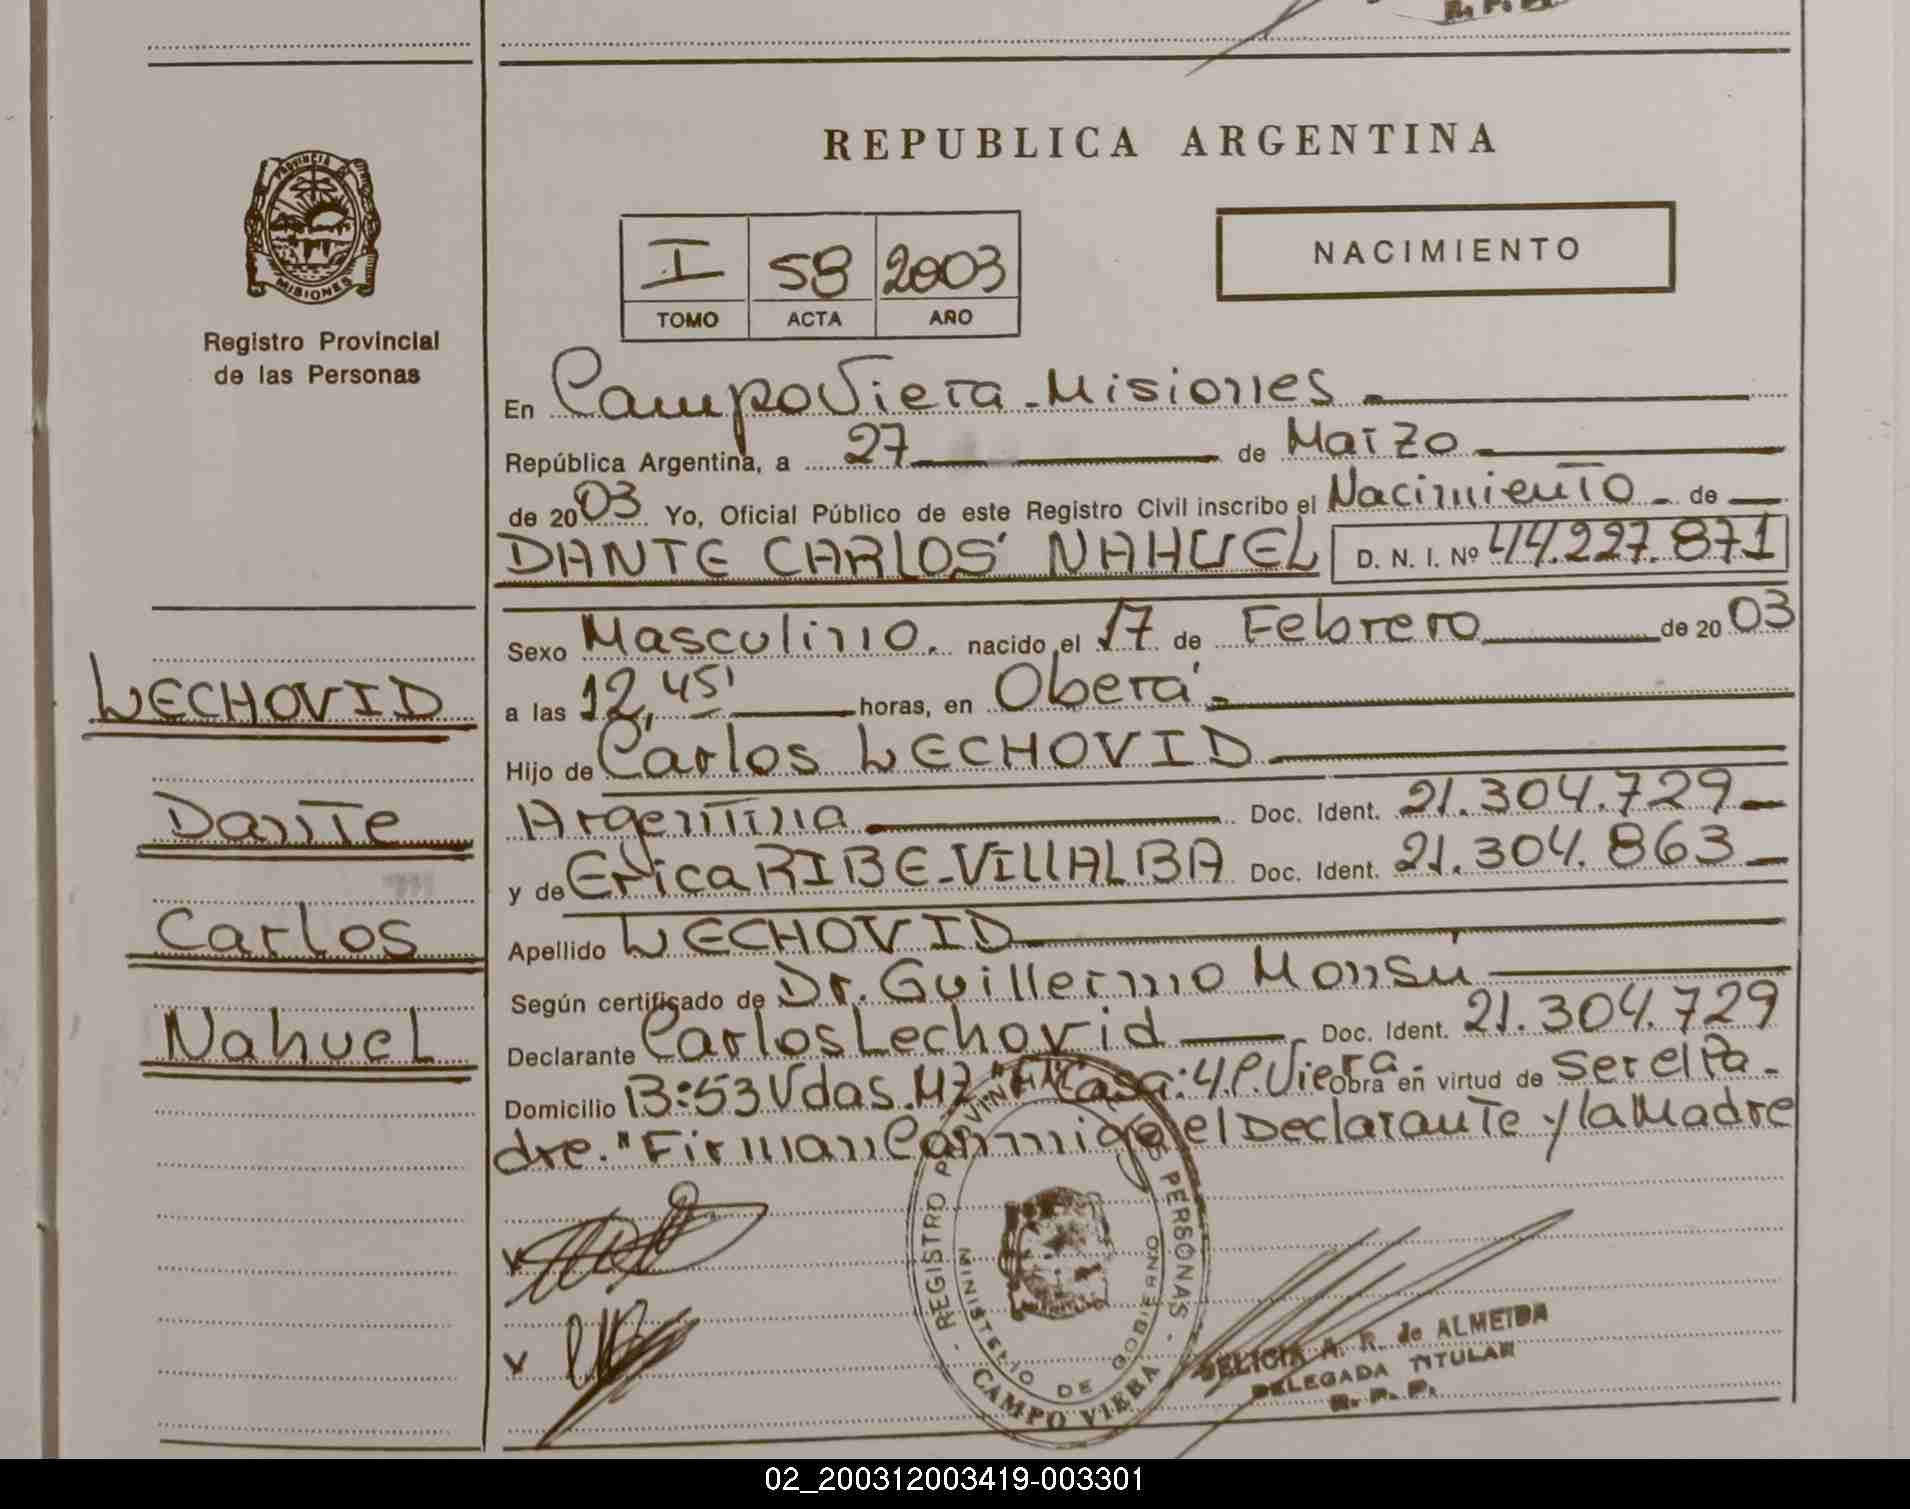 R. P. P.
REPUBLICA ARGENTINA
PROVINCIA DE
MISIONES
Registro Provincial
de las Personas
I 58 2003
TOMO ACTA AÑO
NACIMIENTO
En Campo Viera - Misiones
República Argentina, a 27 de Marzo
de 2003 Yo, Oficial Público de este Registro Civil inscribo el Nacimiento - de
DANTE CARLOS NAHUEL D. N. I. Nº 44.227.871
Sexo Masculino. nacido el 17 de Febrero de 2003
a las 12,45' horas, en Oberá -
Hijo de Carlos LECHOVID
Argentina Doc. Ident. 21.304.729
y de Erica RIBE-VILLALBA Doc. Ident. 21.304.863
Apellido LECHOVID
Según certificado de Dr. Guillermo Monsú
Declarante Carlos Lechovid Doc. Ident. 21.304.729
Domicilio B:53 Vdas. MZ "A" Casa: 4. C. Viera - Obra en virtud de ser el Pa-
dre. "Firman Conmigo el Declarante y la Madre
LECHOVID
Dante
Carlos
Nahuel
REGISTRO PROVINCIAL DE LAS PERSONAS
MINISTERIO DE GOBIERNO
CAMPO VIERA
DELICIA A. R. de ALMEIDA
DELEGADA TITULAR
R. P. P.
02_200312003419-003301